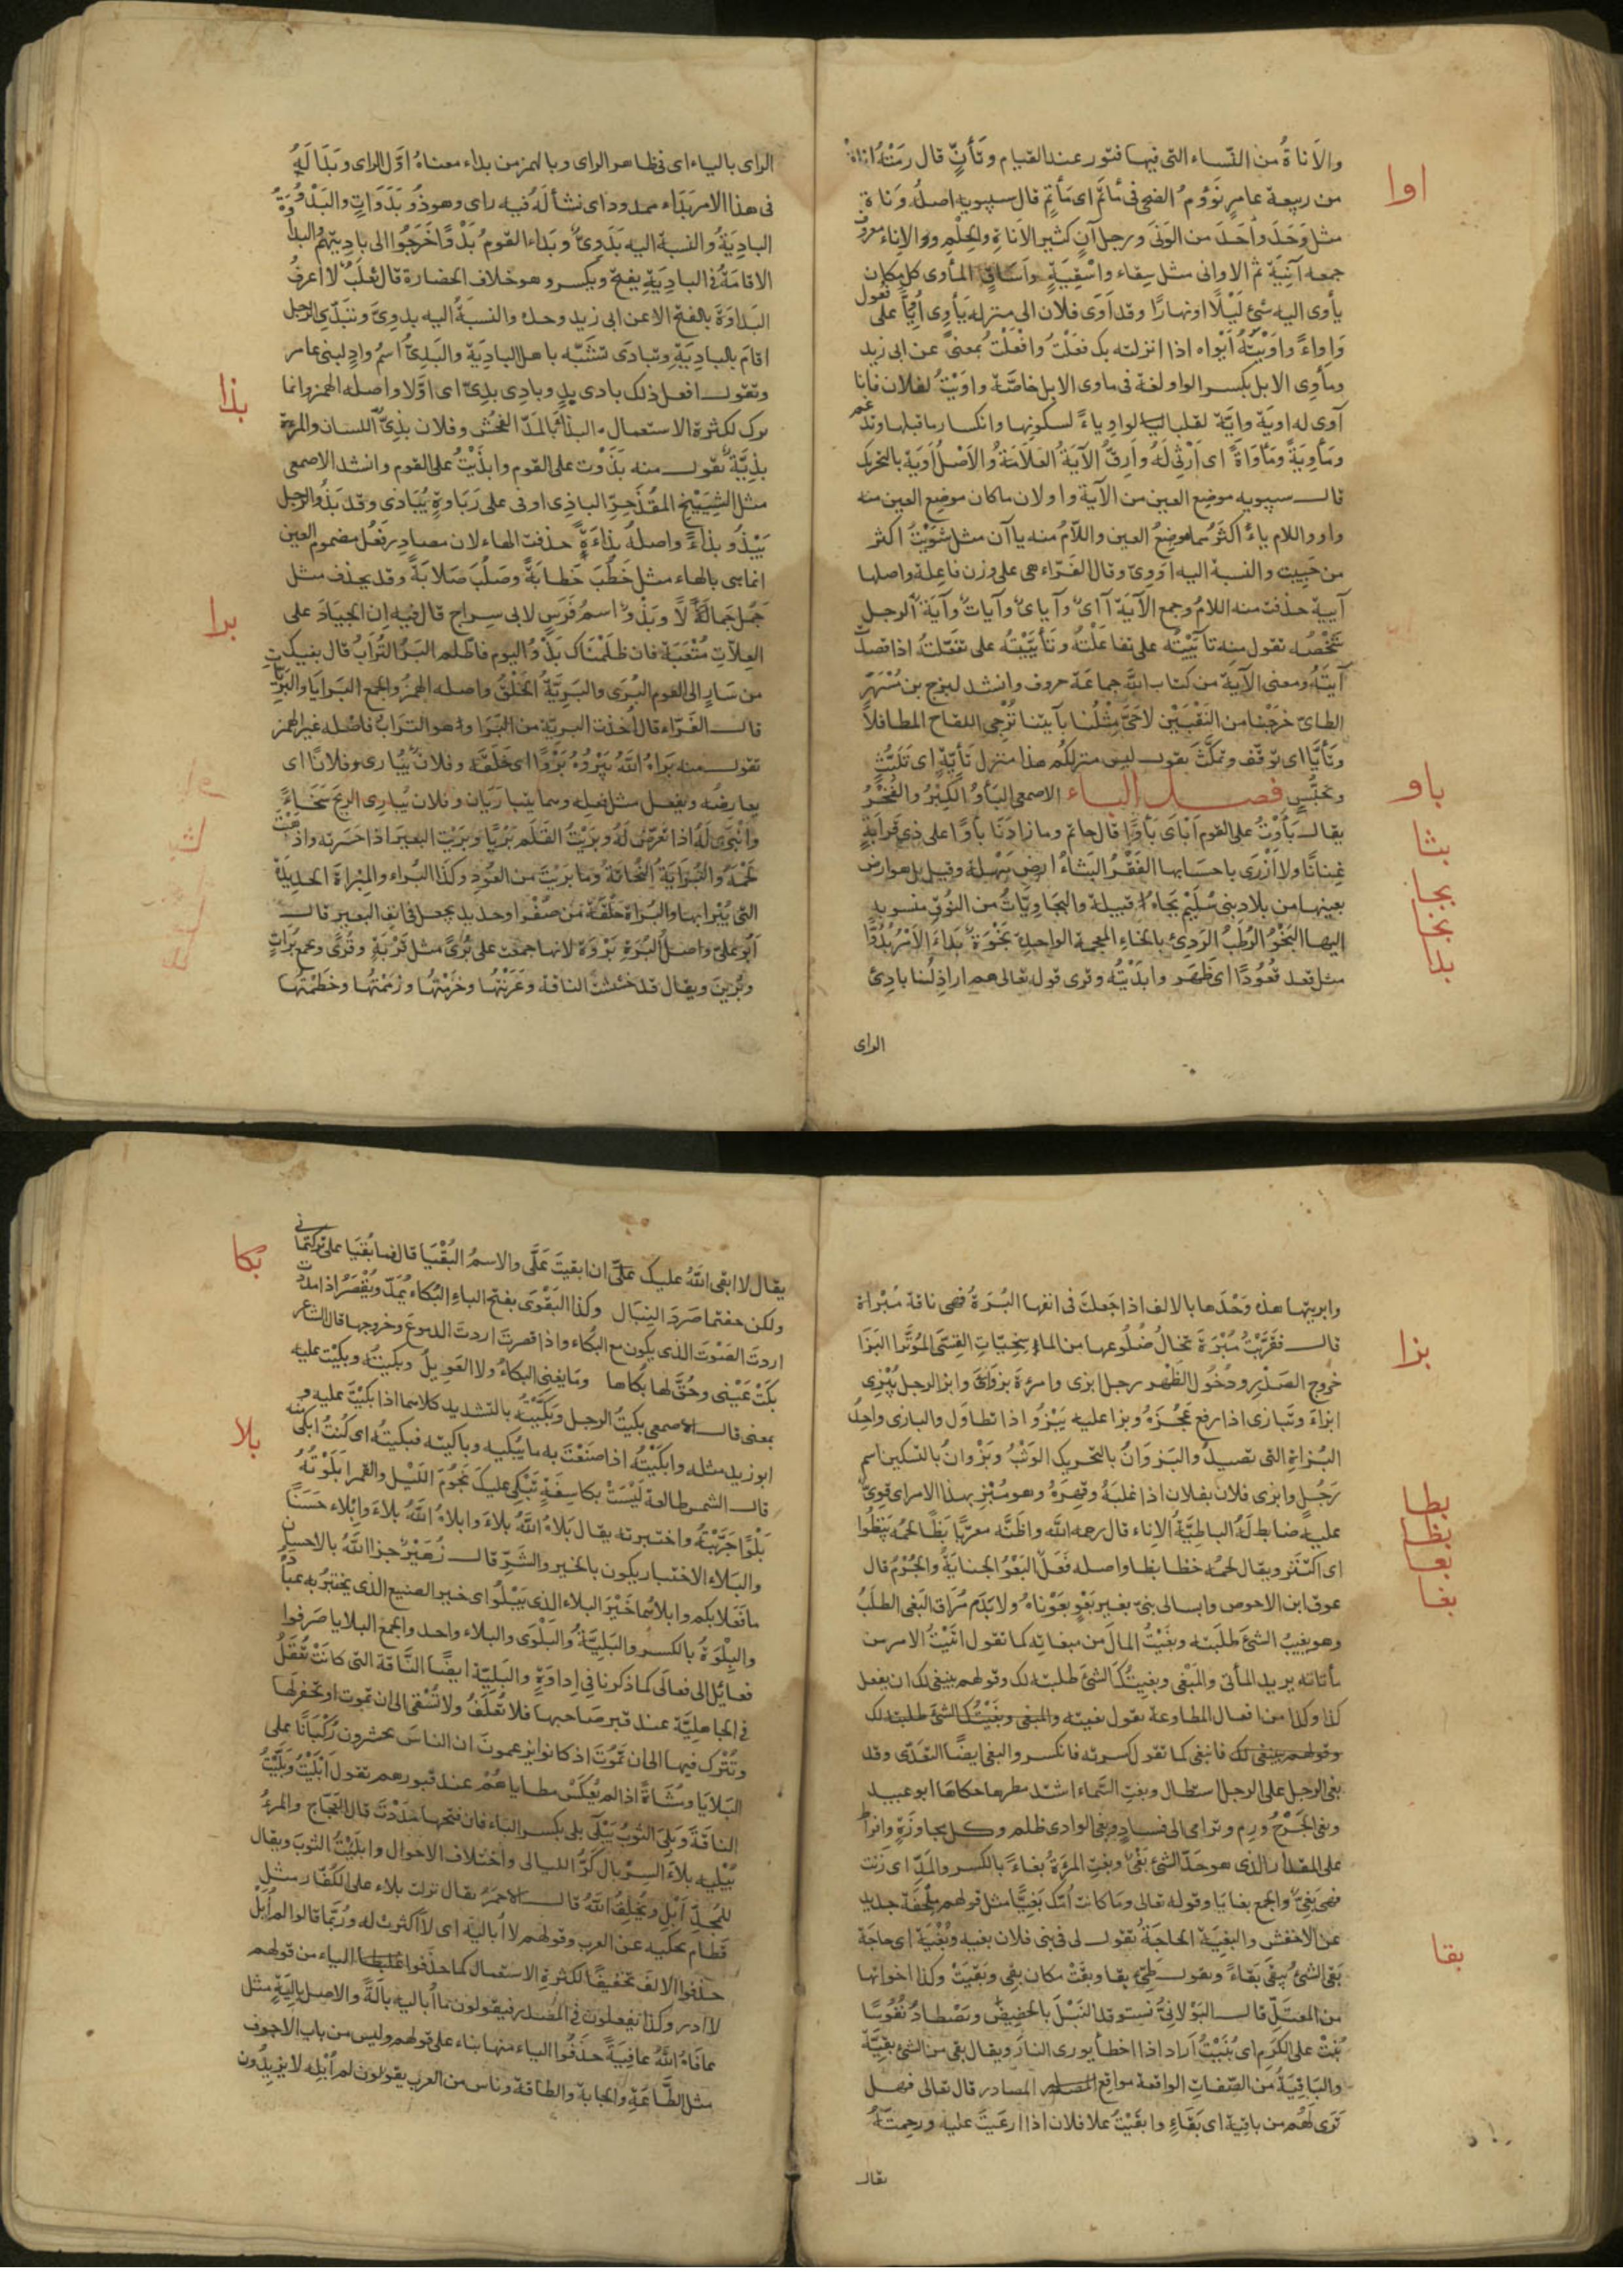 والأَناةُ من النّساء التى فيها فتور عند القيام وتَأنٍّ قال رَمَتْهُ اناة
اوا
من ربيعة عامرٍ نَؤومُ الضحى فى مَأتَمٍ اى مَأتمٍ قال سيبويه اصلهُ وَنَاة
مثل وَحَدَ وأَحَدَ من الوَنَى ورجل آنٍ كثير الأناة والحِلْم والإناء معروف
جمعه آنِيَة ثم الاوانى مثل سِقاء واسْقِيَةٍ واَساقٍ المأوى كل مكان
يأوى اليه شئ لَيْلًا اونهارًا وقد اَوَى فلان الى منزله يَأوِى اُوِيًّا على فعول
وَاِواءً واَوَيْتُهُ اَيْواه اذا انزلته بك فَعَلْتُ وافْعَلْتُ بمعنىً عن ابى زيد
ومأوِى الابل بكسر الواو لغة فى ماوى الابل خاصَّة واَوَيْتُ لفلان فانا
آوى له اويَة وايَّة لقلب الواو ياءً لسكونها وانكسار ما قبلها
ومَأوِيَةً ومَأواةً اى اَرْثِى لَهُ واَرِقُّ الآيَةُ العَلَامَةُ والاَصْلُ اَوَيَة بالتحريك
قال سيبويه موضع العين من الآية واو لان ما كان موضع العين منه
واو واللام ياءً اكثَرُ مما موضعُ العين واللّامُ منه ياآن مثل شَوَيْتُ اكثر
من حَيِيت والنسبة اليه اَوَوِىّ وقال الفَرّاء هى على وزن فاعِلة واصلها
آيِيَة حذفت منه اللامُ وجمع الآيَة آاىٌ وآياىٌ وآياتٌ وآيَةُ الرجل
شَخْصُه تقول منه تآيَيْتُه على تفاعَلْتُه وتَأيَّيْتُه على تفَعّلتُه اذا قصدتَ
آيتَهُ ومعنى الآيَة من كتاب اللّهِ جماعَة حروف وانشد لبرج بن مُسْهِرٍ
الطائىّ خرَجْنا من النَقْبَيْن لاحَىَّ مِثْلُنا بآيتنا نُزْجِى اللقاح المطافلا
وتَأيَّا اى توقّف وتمكَّثَ يقول ليس منزلكُم هذا منزل تَأيّةٍ اى تَلَبُّثٍ
وتحَبُّسٍ فصل الباء الاصمعى البَأوُ الكِبْرُ والفَخْرُ
باو
يقال بَأَوْتُ على القوم اَبْأَى بَأوًا قال حاتم وما زادَنَا بأوًا على ذى قَرابَةٍ
غِنانَا ولا اَزْرَى باحسَابها الفَقْرُ البَثاءُ ارض سَهْلة وقيل بل هو ارض
بثا
بعينها من بلاد بنى سُلَيْم بَجاءُ قبيلة والبَجَاوِيّاتُ من النُوق منسوبة
بجا
اليها البَخْوُ الرُطَبُ الرَدِئُ بالخاء المعجمة الواحدة بَخْوَةٌ بَدا الاَمْرُ بُدُوًّا
بخا
مثل قعد قُعُودًا اى ظَهَر وابدَيْتُه وقرئ قوله تعالى هم اراذِلُنا بادِئَ
بدا
الراى
الراى بالياء اى فى ظاهر الراى وبالهمز من بداء معناهُ اوَّل الراى وبَدَا لَهُ
فى هذا الامر بَدَاء ممدود اى نشأ لَهُ فيه راى وهو ذُو بَدَوَاتٍ والبَدْوُ
البادِيَةُ والنسبة اليه بَدَوِىٌّ وبَدا القومُ بَدْوًا خَرَجُوا الى بادِيتِهِم والبداوة
الاقامَةُ فى البادِيَةِ يفتح ويكسر وهو خلاف الحضارة قال ثعلَبٌ لا اعرفُ
البَداوَةَ بالفتح الا عن ابى زيد وحده والنسبَةُ اليه بدوِىّ وتبَدّى الرجل
اقامَ بالبادِيَةِ وتبادَى تشَبَّه باهل البادِيَة والبَدِىُّ اسمُ وادٍ لبنى عامر
وتقول افعل ذلك بادى بدٍ وبادِى بدِىٍّ اى اوّلا واصله الهمز وانما
بذا
ترك لكثرة الاستعمال البذاءُ بالمدّ الفُحْشُ وفلان بذِىُّ اللسان والمرءة
بذِيَّةٌ تقول منه بَذَوْت على القوم وابذَيْتُ على القوم وانشد الاصمعى
مثل الشُيَيْخ المُقْذَحِرِّ الباذِى اوفى على رَبَاوةٍ يُبَاذى وقد بَذُوَ الرجل
يَبْذُو بذاءً واصلهُ بذاءَةً حذفت الهاء لان مصادر فَعُل مضموم العين
انما هى بالهاء مثل خَطُبَ خَطابَةً وصَلُبَ صَلابَةً وقد يحذف مثل
جَمُل جَمالًا وبَذْوٌ اسمُ فَرَسٍ لابى سِراجٍ قال فيه اِن الجِيَادَ على
برا
العِلّاتِ مُتْعَبَة فان ظَلَمْناكَ بَذْوُ اليوم فاظّلم البَرَا التُرَابُ قال بفيك
من سَارٍ الى القوم البَرَى والبَرِيَّةُ الخَلْقُ واصله الهمزُ والجمع البَرايَا والبَرِيّات
قال الفَرّاء قال اُخذت البريّة من البَرَا وهو الترابُ فاصله غير الهمز
تقول منه بَراهُ اللّهُ يَبْرُوهُ بَرْوًا اى خَلَقَه وفلان يُبارى فلانًا اى
يعارضُه ويفعل مثل فِعله وهما يتباريان وفلان يُبارِى الريحَ سَخَاءً
وانْبَرَى لَهُ اذا تعَرّضَ لَهُ وبَرَيْتُ القَلَم بَرْيًا وبَرَيْت البعيرَ اذا حَسَرته واذهَبْتَ
لحمَهُ والبُرَايَةُ النُحاتَةُ وما بَرَيْتَ من العُود وكذا البُراء والمِبْراةُ الحديدَة
التى يُبْرا بها والبُرَة حَلْقَة من صُفْر او حديد يجعل فى انف البعير قال
ابو على واصلُ البُرَةِ بَرْوَة لانها جمعت على بُرًى مثل قَرْيَةٍ وقُرًى وتجمع بُرَاتٍ
وبُرينَ ويقال قد خشَشتُ الناقة وعَرَنْتُها وخَزَمْتُها وزَمَمْتُها وخطَمْتُها
وابريتها هذه وَحْدَها بالالف اذا جَعلتَ فى انفها البُرَةُ فهى ناقة مُبْراة
قال فقَرَّبْتُ مُبْرَةً تخالُ ضُلُوعها من الماءِ سِخِيّاتِ القِسِىِّ المُوَتَّرا البَزَا
بزا
خروج الصَدْرِ ودُخُول الظَهْر رجل ابزى وامرءة بزوَاءُ وابزا الرجل يُبْزِى
ابزاءً وتَبازى اذا رفع عَجُزَهُ وبزا عليه يَبْزُوا اذا تطاوَل والبازى واحدُ
البُزاةِ التى تصيدُ والبَزوَانُ بالتحريك الوَثْبُ وبَزْوانُ بالتسكين اسم
رَجُلٍ وابزى فلان بفلان اذا غلبَهُ وقهرَهُ وهو مُبْزٍ بهذا الامر اى قوِىٌّ
عليه ضابط لَهُ الباطِيَةُ الإناء قال رحمه اللّه واظنّه معربًا بَظَا لحمُه يَبْظُوا
بطا
بظا
اى اكتَنَز ويقال لحمُه خظا بظا واصله فَعَلَ البَعْوُ الجنايَةُ والجُرْمُ قال
بعا
عوف ابن الاحوص وابسالى بنىّ بغير بَعْوٍ بعَوْناهُ ولا بَدَمٍ مُرَاق البَغى الطلَبُ
بغا
وهو بغيبُ الشئَ طلَبْته وبغَيْتُ المالَ من مبغاته كما تقول اتَيْتُ الامر من
مأتاته يريد المأتى والمَبْغى وبغيتُكَ الشئَ طلبته لك وقولهم ينبغى لك ان يفعل
كذا وكذا من افعال المطاوعة تقول بغيته والمبغى وبغَيْتُكَ الشئ طلبته لك
وقولهم ينبغى لك فانبغى كما تقول كسرته فانكسر والبغى ايضًا التعَدّى وقد
بغى الرجل على الرجل استطال وبغتِ السَماءُ اشتد مطرها حكاها ابو عبيد
وبغى الجَرْحُ وَرِم وترامى الى فسادٍ وبغى الوادى ظلم وكل مجاوزَةٍ وافراط
على المقدار الذى هو حَدّ الشئ بَغْىٌ وبغتِ المرءَةُ بغاءً بالكسر والمدّ اى زَنت
فهى بَغِىٌّ والجمع بغايَا وقوله تعالى وما كانت اُمّك بَغِيًّا مثل قولهم مِلْحَفة جديد
عن الاخفش والبغيَةُ الحاجَةُ تقول لى فى بنى فلان بغيه وبُغْيَة اى حاجَة
بَقِىَ الشئُ يَبْقَى بَقاءً وتقول طَيئ بقا وبقَتْ مكان بقِى وبَقيَتْ وكذا اخواتها
بقا
من المعتَلّ قال البَوْلانِىُّ نستوقد النَبْلَ بالحَضِيضِ ونَصْطادُ نُفُوسًا
بُنَتْ على الكَرَم اى بُنِيَتْ اَراد اذا اخطأ يورى النارَ ويقال بقى من الشئ بقِيَّة
والبَاقِيَةُ من الصّفات الواقعة مواقع المصادر قال تعالى فهل
تَرى لَهُم من باقية اى بَقَاءٍ وابقَيْتُ علا فلان اذا ارعَيتَ عليه ورحمتَهُ
يقال
يقال لا ابقى اللّهُ عليك ان ابقيتَ عَلَىَّ والاسمُ البُقْيَا قال فما بُقيَا علىَّ تركتمانى
بكا
ولكن خفتما صَرَدَ النِبَال وكذا البَقْوَى بفتح الباءِ البُكاء يُمَدّ ويُقْصَرُ اذا مددت
اردتَ الصَوْتَ الذى يكون مع البُكاء واذا قصرتَ اردتَ الدموعَ وخروجها قال الشاعر
بكَتْ عَيْنِى وحُقَّ لها بُكاها وما يغنى البكاءُ ولا العَوِيلُ وبكيتُه وبكيْت عليه
بمعنى قال الاصمعى بكيتُ الرجل وبَكَّيْتُه بالتشديد كلاهما اذا بكيْتَ عليه و
ابو زيد مثله وابكَيْتُه اذا صنَعْتَ به ما يُبْكيه وباكيته فبكيتُه اى كُنتُ ابكى منه
قال الشمس طالعة لَيْسَتْ بكاسِفَةٍ تَبْكى عليكَ نجُومَ اللَيْل والقمرا بَلَوتُهُ
بلا
بَلْوًا جَرَّبْتُهُ واختبرته يقال بَلاهُ اللّهُ بلاءَ وابلاهُ اللّهُ بلاءَ وابْلاء حَسَنًا
والبَلاء الاختبار يكون بالخير والشَرِّ قال زُهَيْرٌ جزا اللّهُ بالاحسان
ما فَعَلا بكم وابلاهُما خَيْرَ البلاء الذى يَبْلُوا اى خير الصنيع الذى يختَبرُ به عبادَه
والبِلْوَةُ بالكسر والبَلِيَّةُ والبَلْوَى والبلاء واحد والجمع البلايا صَرفوا
فعائل الى فعالَى كما ذكرنا فى اِداوَةٍ والبَلِيّة ايضًا النَّاقة التى كانَتْ تُعقَلُ
فى الجاهليَّة عند قبر صاحبها فلا تُعلَفُ ولا تُسْقى الى ان تموت او يحفر لها
وتُتْرَك فيها الى ان تَمُوتَ اذ كانوا يزعمونَ ان الناسَ يحشرون رُكْبَانًا على
البَلايَا ومُشَاةً اذا لم يُعكَسْ مطاياهُمْ عند قبورهم تقول اَبْلَيْتُ وبَلَّيْتُ
الناقةَ وبَلِىَ الثوبُ يَبْلَى بلى بكسر الباء فان فتحتها مَدَدْتَ قال العَجّاج والمرءُ
يُبْليه بلاءَ السِرْبال كَرُّ الليالى واختلاف الاحوال وابلَيْتُ الثوبَ ويقال
للمُجِدِّ اَبْلِ ويُخْلِفُ اللّهُ قال الاحمرُ يقال نزلت بلاء على الكفّار مثل
قَطَام يحكيه عن العرب وقولهم لا اُباليه اى لا اكترث له ورُبّما قالوا لم اُبَلْ
حذفوا الالف تخفيفًا لكثرةِ الاستعمال كما حذفوا الياء من قولهم
لا ادر وكذا يفعلون فى المصدر فيقولون ما اُباليه بالَةً والاصل بالِيَةٍ مثل
عافاهُ اللّهُ عافِيَةً حذَفُوا الياء منها بناء على قولهم وليس من باب الاجوف
مثل الطَّاعَةِ والجابة والطاقة وناس من العرب يقولون لم اُبَلِه لا يزيدُون